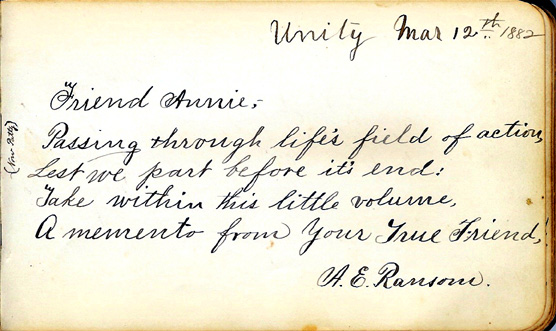 Unity Mar 12th 1882
Friend Annie,-
Passing through life's field of action,
Lest we part before it's end:
Take within this little volume,
A memento from Your True Friend,
A. E. Ransom.